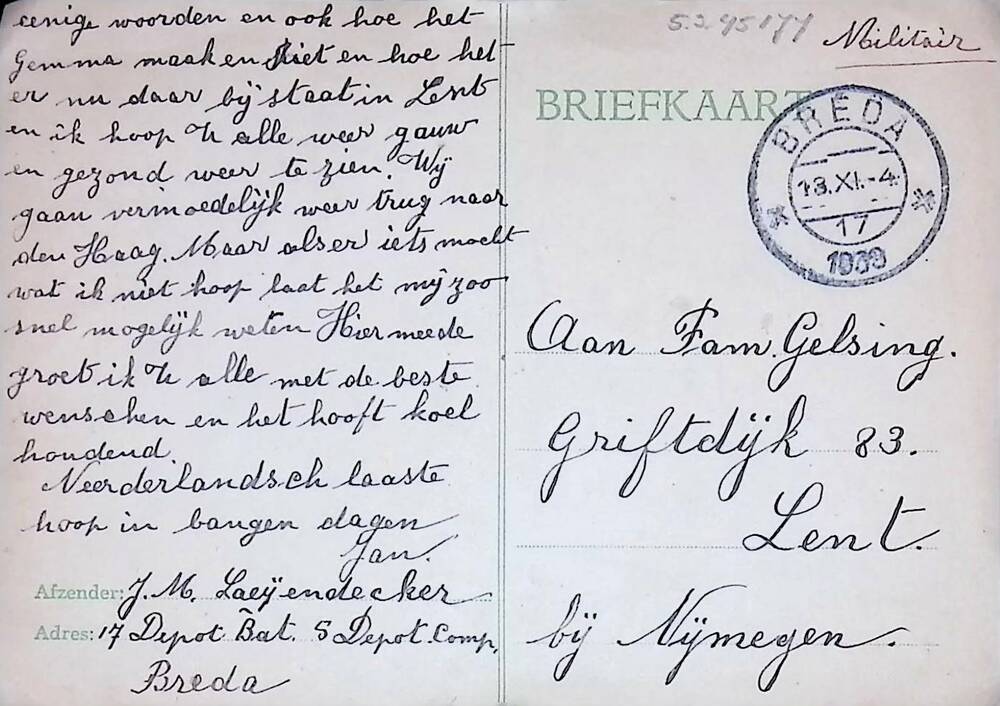 eenige woorden en ook hoe het
Gemma maak en Riet en hoe het
er nu daar bij staat in Lent
en ik hoop U alle weer gauw
en gezond weer te zien. Wij
gaan vermoedelijk weer trug naar
den Haag. Maar als er iets mocht
wat ik niet hoop laat het mij zoo
snel mogelijk weten Hier meede
groet ik U alle met de beste
wenschen en het hooft koel
houdend.
Neerderlandsch laaste
hoop in bangen dagen
Jan.
Afzender: J. M. Laeijendecker
Adres: 17 Depot Bat. 5 Depot Comp,
Breda
Militair
BRIEFKAART
BREDA
13.XI.-4
17
1939
Aan Fam. Gelsing.
Griftdijk 83.
Lent.
bij Nijmegen.